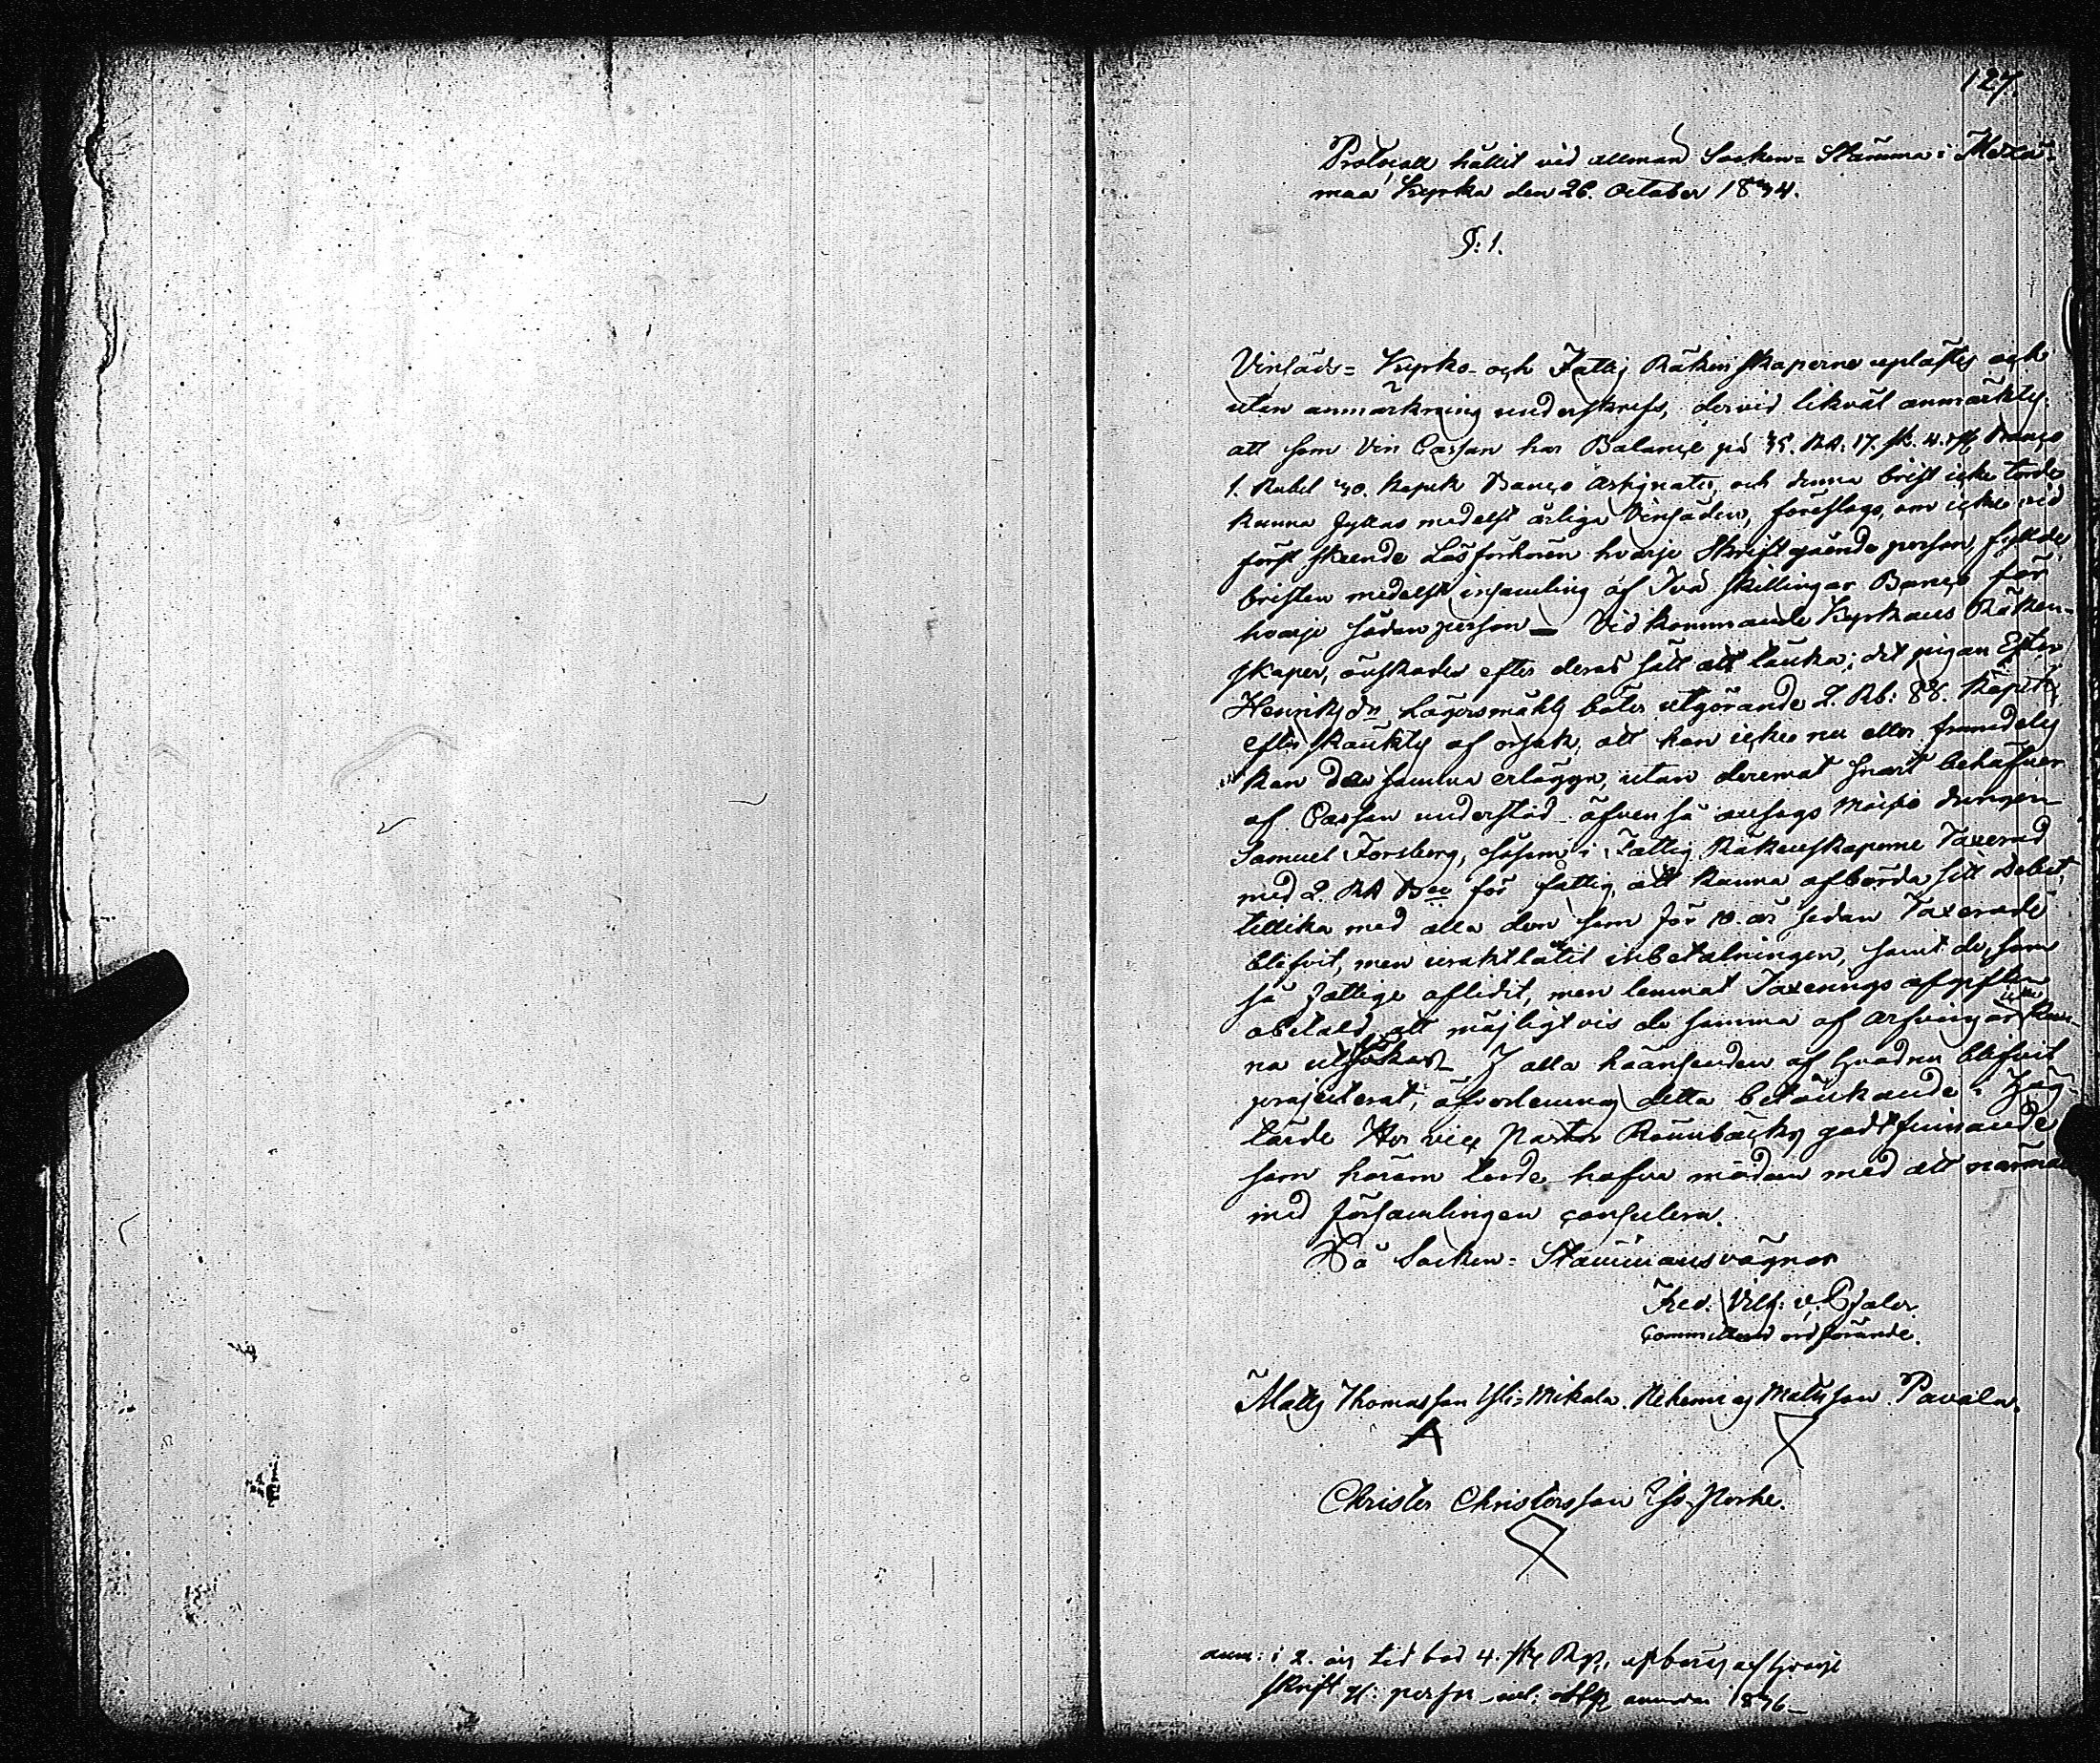 127.
Protocoll hållit vid allman Socken= Stämma i Metzä=
maa Kyrka den 26. October 1834.
§: 1.
Vinsäds= Kyrko- och Fattig Räkenskaperne uplästes och
utan anmärkning underskrefs, dervid likväl anmärktes:
att som Vin Cassan har Balançe på 35. RD. 17. sk. 4. rst Banço
1. Rubel 30. Kopek Banço Assignater, och denna brist icke torde
kunna fyllas medelst årliga Vinsäden, föreslogs, om icke vid
först skeende Läsförhören hvarje Skriftgående person, fyllde
bristen medelst insamling af Två Skillingar Banço för
hvarje sådan person — Vid kommande Kyrkans Räken=
skaper, önskades efter deras sätt att tänka; det pigan Ester
Henriksdr Lägersmåhls böter utgörande 2. Rb: 88. Kopek,
efterskänktes af orsak, att hon icke nu eller framdeles
kan den samma erlägga, utan deremot snart behöfver
af Cassan understöd - äfven så ansågs Moisio drängen
Samuel Forsberg, såsom i Fattig Räkenskaperne Taxerad
med 2. RD Bco för fattig att kunna afbörda sitt debet,
tillika med alla dem som för 10. år sedan Taxerade
blifvit, men uraktlåtit inbetalningen, samt de, som
så fattige aflidit, men lemnat Taxerings afgiften
obetald, att möjligtvis de samma af arfvingar kun=
na utsökas - I alla hänseenden af hvad nu blifvit
projecterat, öfverlemnas detta betänkande i Hög=
lärde Her vice Pastor Rönnbäcks godtfinnande
som härom torde hafva mödan med att närmare
med församlingen consulera.
På Socken= Stämmans vägnar
Fred. Vilh:
Committerad ordförande.
Matts Thomasson Yli= Mikola. Nehemias Mattsson Pavola.
Christer Christersson
anm: i 2. års tid bad 4. sk Rgs, upbäras af hvarje
skrift g: person 1836